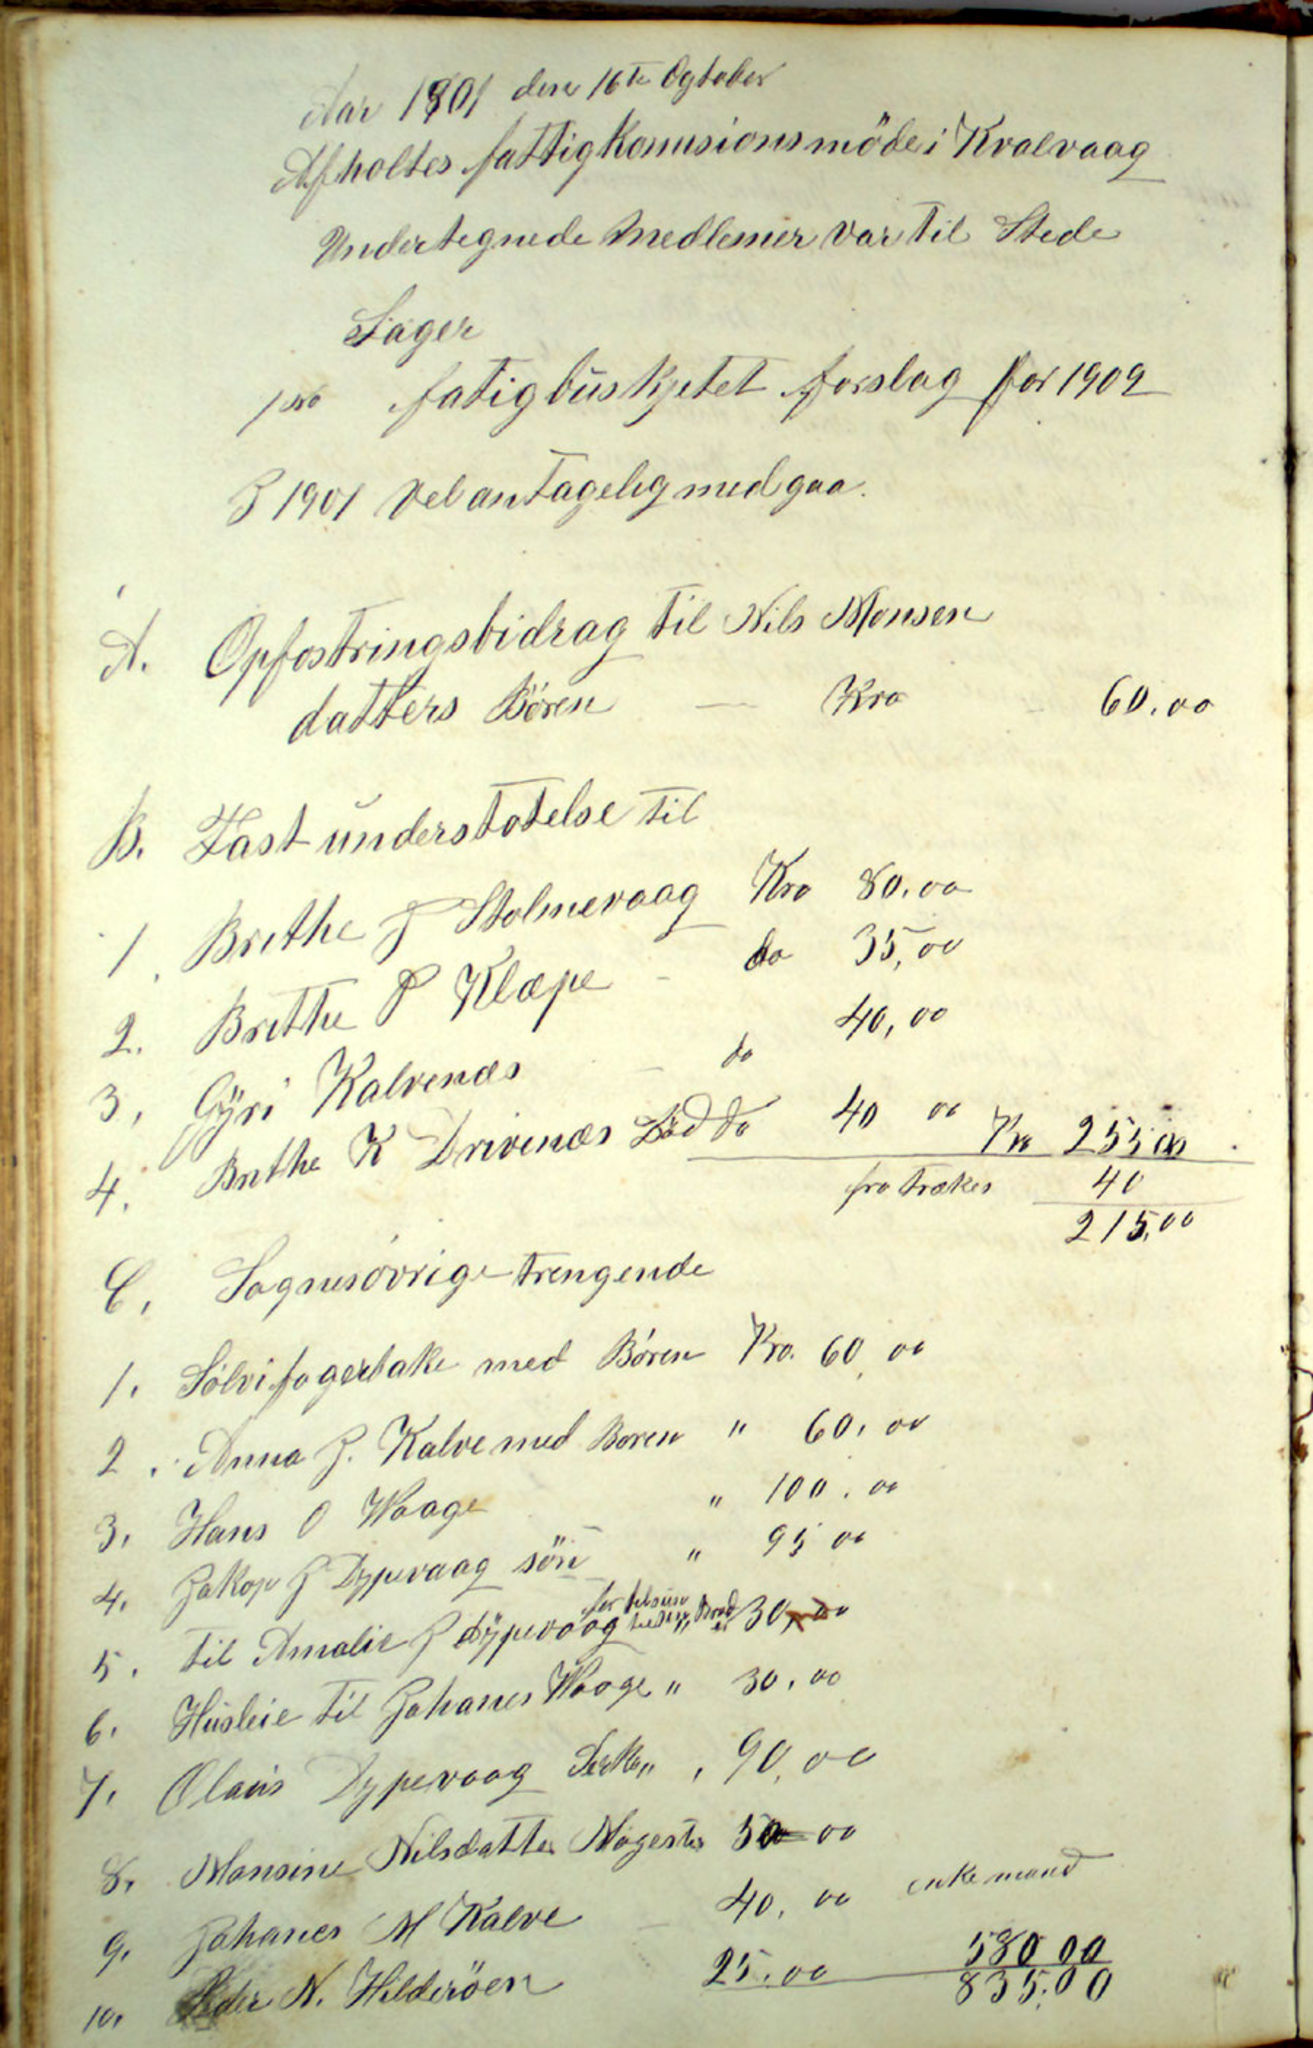 Aar 1901 den 16te Ogtober
Afholtes fattigkomisionsmöde i Kvalvaag
Undertegnede Medlemer var til Stede
Sager
1ste fatigbuskjetet forslag for 1902
I 1901 vel antagelig medgaa.
A. Opfostringsbidrag til Nils Monsen
datters Bören — Kro 60.00
B. Fast understøtelse til
1. Brithe J Stolmevaag Kro 80.00
2. Brithe P Klæpe - do 35,00
3. Gÿri Kalvenæs - do 40,00
4. Brithe K Drivenæs Död do 40 00 Kro 255 00
fratrækes 40
215,00
C. Sognesövrige trengende
1. Sölvi fagerbake med Bören Kro. 60,00
2. Anna J. Kalve med Boren " 60.00
3. Hans O Waage " 100.00
4. Jakop J Dypevaag sön " 95 00
5. Til Amalie J Dÿpevaag for 30,00
6. Husleie til Johanes Waage " 30.00
7. Olaus Dypevaag " 90,00
8. Monsine Nilsdatter Møgester 50 00
9. Johanes M Kalve - 40,00 enkemand
10. Peder N. Hilderöen 25.00 580 00
835.00